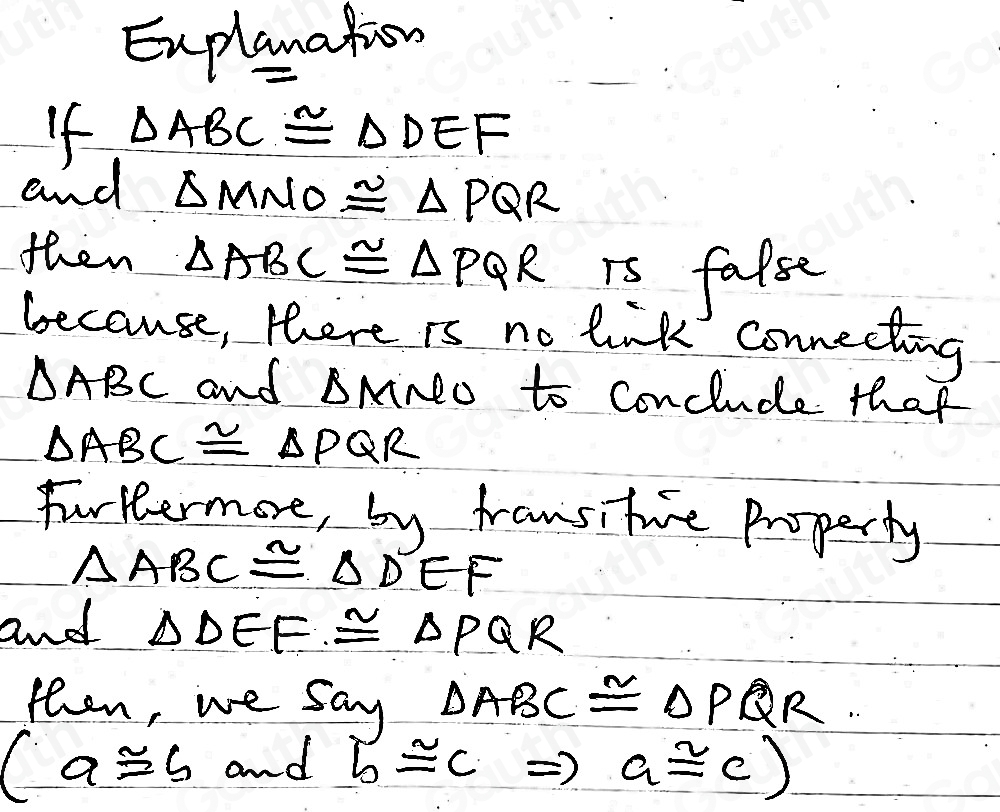 Explanation
If ΔABC ≅ ΔDEF
and ΔMNO ≅ ΔPQR
then ΔABC ≅ ΔPQR is false
because, there is no link connecting
ΔABC and ΔMNO to conclude that
ΔABC ≅ ΔPQR
Furthermore, by transitive property
ΔABC ≅ ΔDEF
and ΔDEF ≅ ΔPQR
then, we say ΔABC ≅ ΔPQR.
(a ≅ b and b ≅ c => a ≅ c)